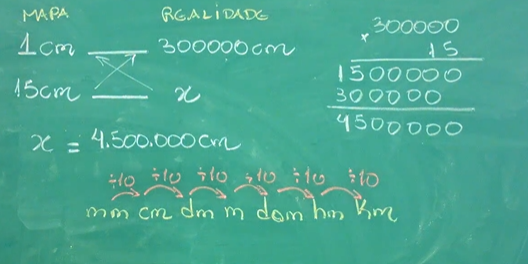 MAPA REALIDADE
1cm 300000cm
15cm x
x = 4.500.000cm
300000
x 15
1500000
300000
4500000
÷10 ÷10 ÷10 ÷10 ÷10 ÷10
mm cm dm m dam hm Km